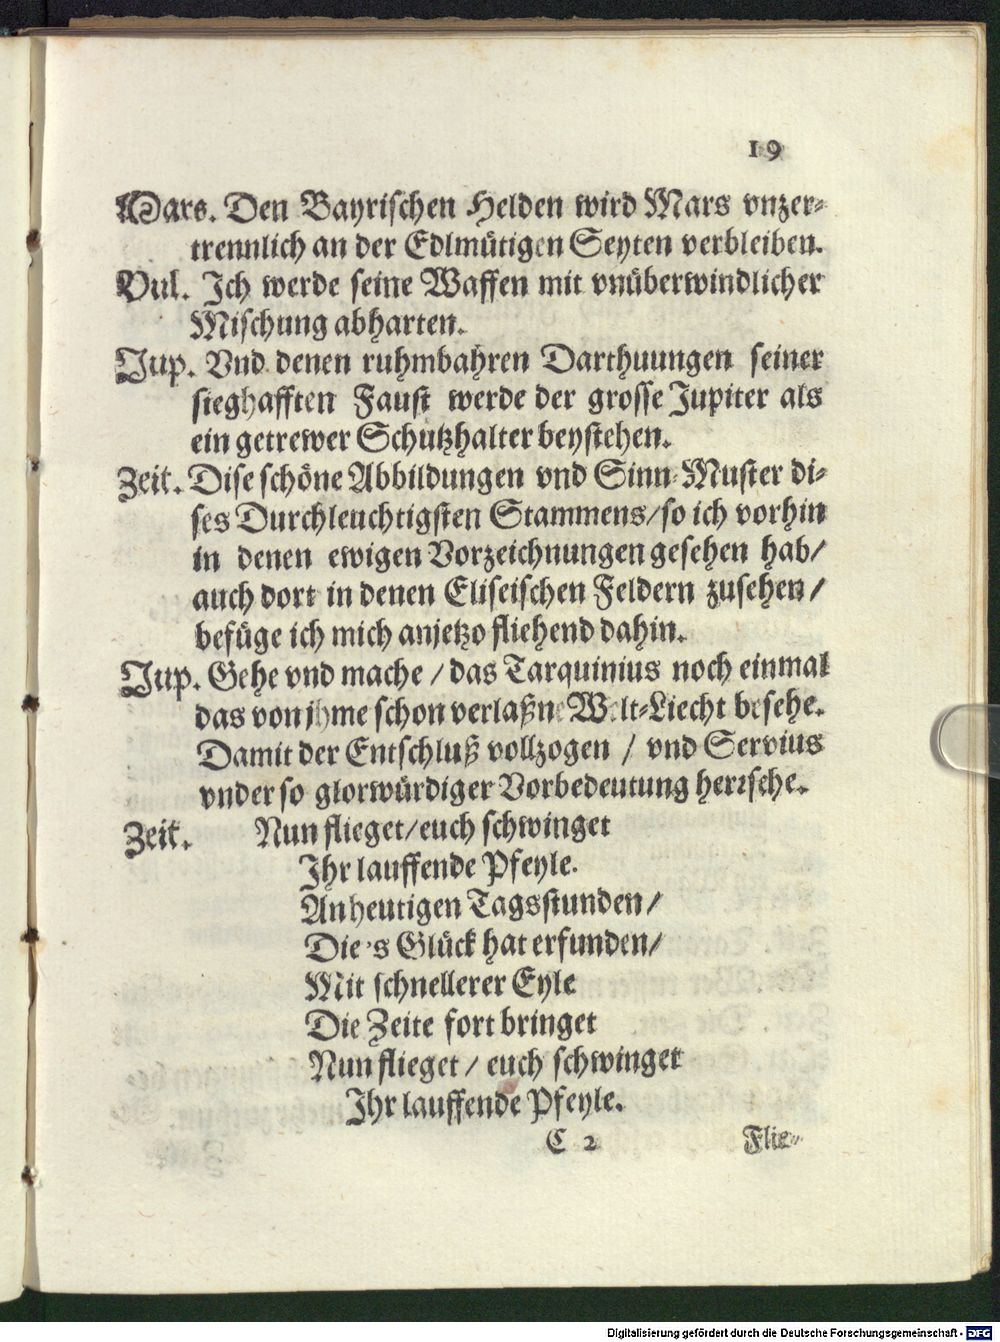 19
Mars. Den Bayrischen Helden wird Mars vnzer-
trennlich an der Edlmütigen Seyten verbleiben.
Vul. Ich werde seine Waffen mit vnüberwindlicher
Mischung abharten.
Jup. Vnd denen ruhmbahren Darthuungen seiner
sieghafften Faust werde der grosse Jupiter als
ein getrewer Schutzhalter beystehen.
Zeit. Dise schöne Abbildungen vnd Sinn-Muster di-
ses Durchleuchtigsten Stammens/so ich vorhin
in denen ewigen Vorzeichnungen gesehen hab/
auch dort in denen Eliseischen Feldern zusehen/
befüge ich mich anjetzo fliehend dahin.
Jup. Gehe vnd mache / das Tarquinius noch einmal
das von jhme schon verlaßne Welt-Liecht besehe.
Damit der Entschluß vollzogen / vnd Servius
vnder so glorwürdiger Vorbedeutung herrsche.
Zeit. Nun flieget/euch schwinget
Ihr lauffende Pfeyle.
An heutigen Tagsstunden/
Die 's Glück hat erfunden/
Mit schnellerer Eyle
Die Zeite fort bringet
Nun flieget / euch schwinget
Ihr lauffende Pfeyle.
C 2 Flie-
Digitalisierung gefördert durch die Deutsche Forschungsgemeinschaft - DFG